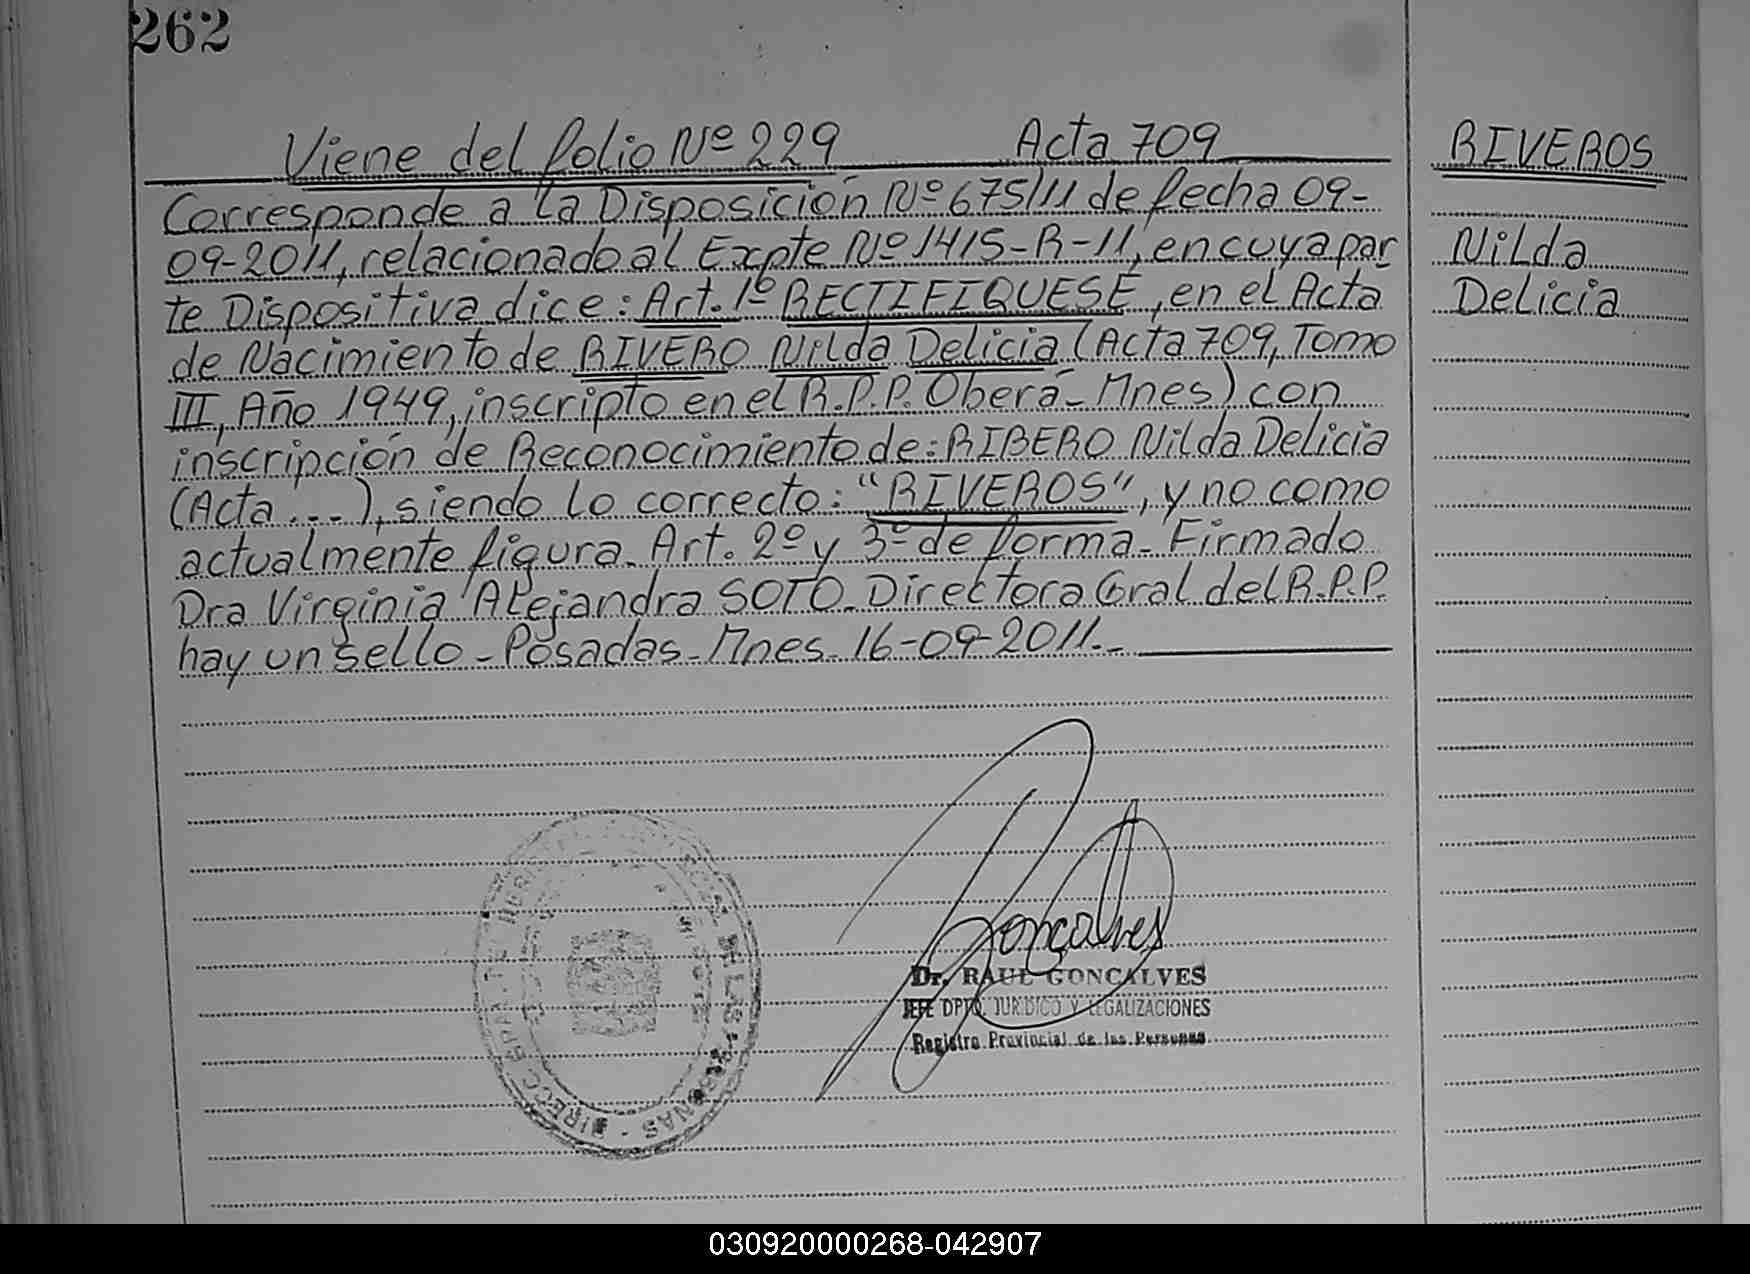 262
Viene del folio Nº 229 Acta 709
Corresponde a la Disposición Nº 675/11 de fecha 09-
09-2011, relacionado al Expte Nº 1415-R-11, en cuya par
te Dispositiva dice: Art. 1º RECTIFIQUESE, en el Acta
de Nacimiento de RIVERO Nilda Delicia (Acta 709, Tomo
III, Año 1949, inscripto en el R.P.P. Oberá- Mnes) con
inscripción de Reconocimiento de: RIBERO Nilda Delicia
(Acta ...), siendo lo correcto: "RIVEROS", y no como
actualmente figura. Art. 2º y 3º de forma- Firmado
Dra Virginia Alejandra SOTO- Directora Gral del R.P.P.
hay un sello- Posadas- Mnes- 16-09-2011.-
RIVEROS
Nilda
Delicia
Gonçalves
Dr. RAUL GONCALVES
JEFE DPTO. JURIDICO Y LEGALIZACIONES
Registro Provincial de las Personas
DIRECC. GRAL. DE LAS PERSONAS
030920000268-042907